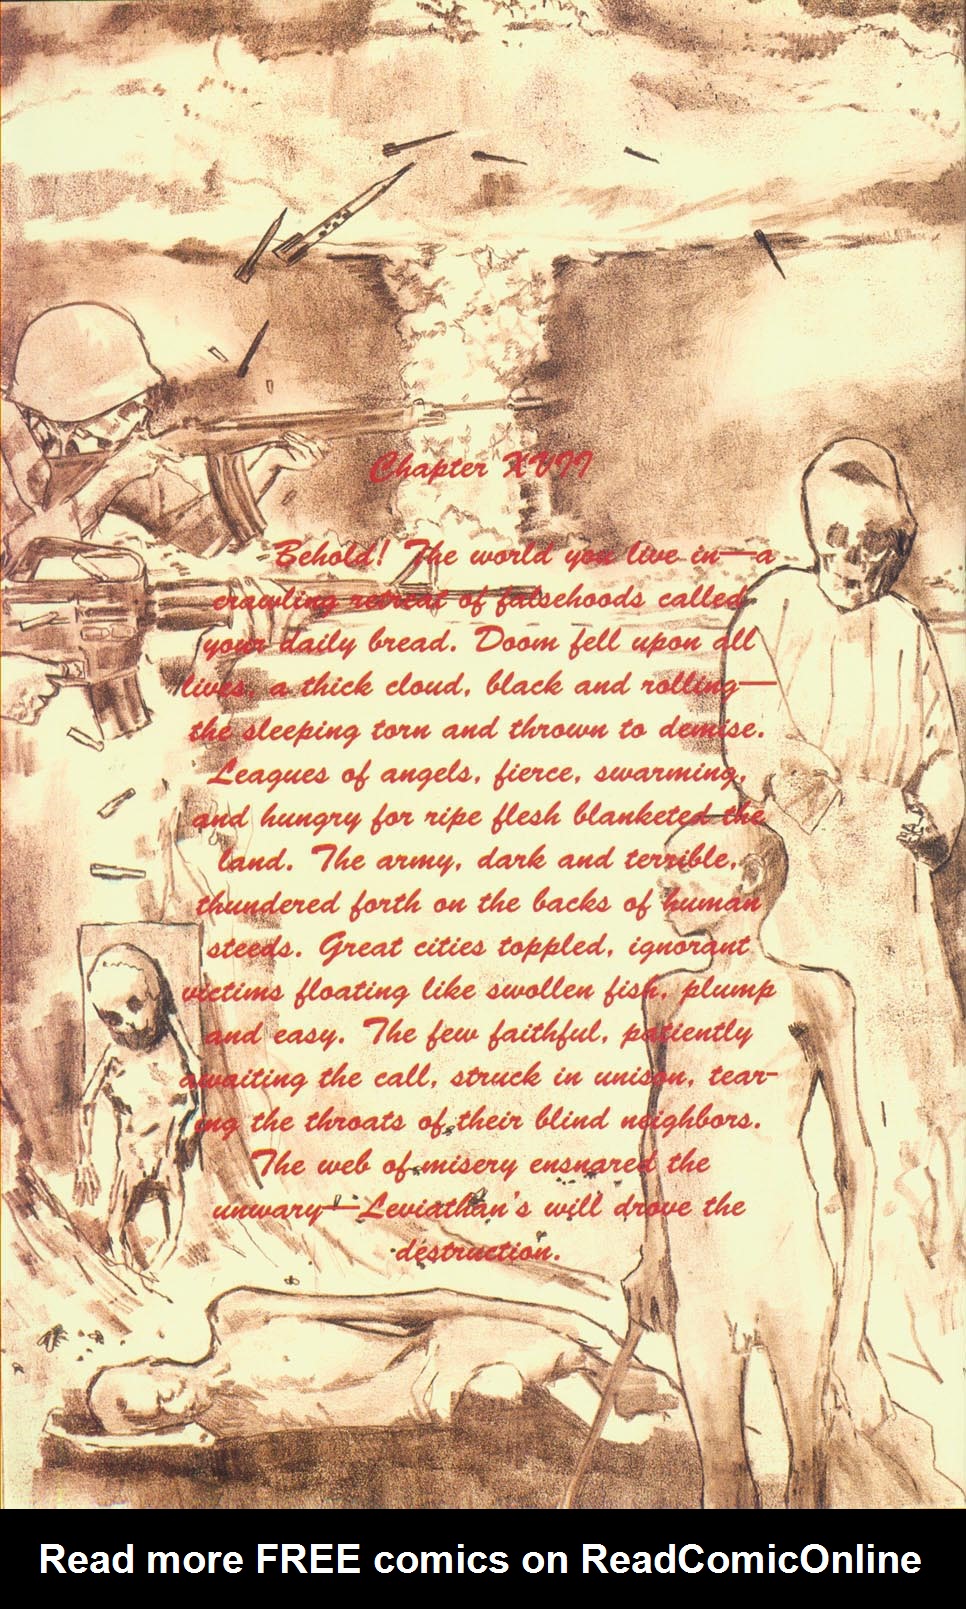 Chapter XVII
Behold! The world you live in—a
crawling retreat of falsehoods called
your daily bread. Doom fell upon all
lives, a thick cloud, black and rolling—
the sleeping torn and thrown to demise.
Leagues of angels, fierce, swarming,
and hungry for ripe flesh blanketed the
land. The army, dark and terrible,
thundered forth on the backs of human
steeds. Great cities toppled, ignorant
victims floating like swollen fish, plump
and easy. The few faithful, patiently
awaiting the call, struck in unison, tear-
ing the throats of their blind neighbors.
The web of misery ensnared the
unwary—Leviathan's will drove the
destruction.
Read more FREE comics on ReadComicOnline